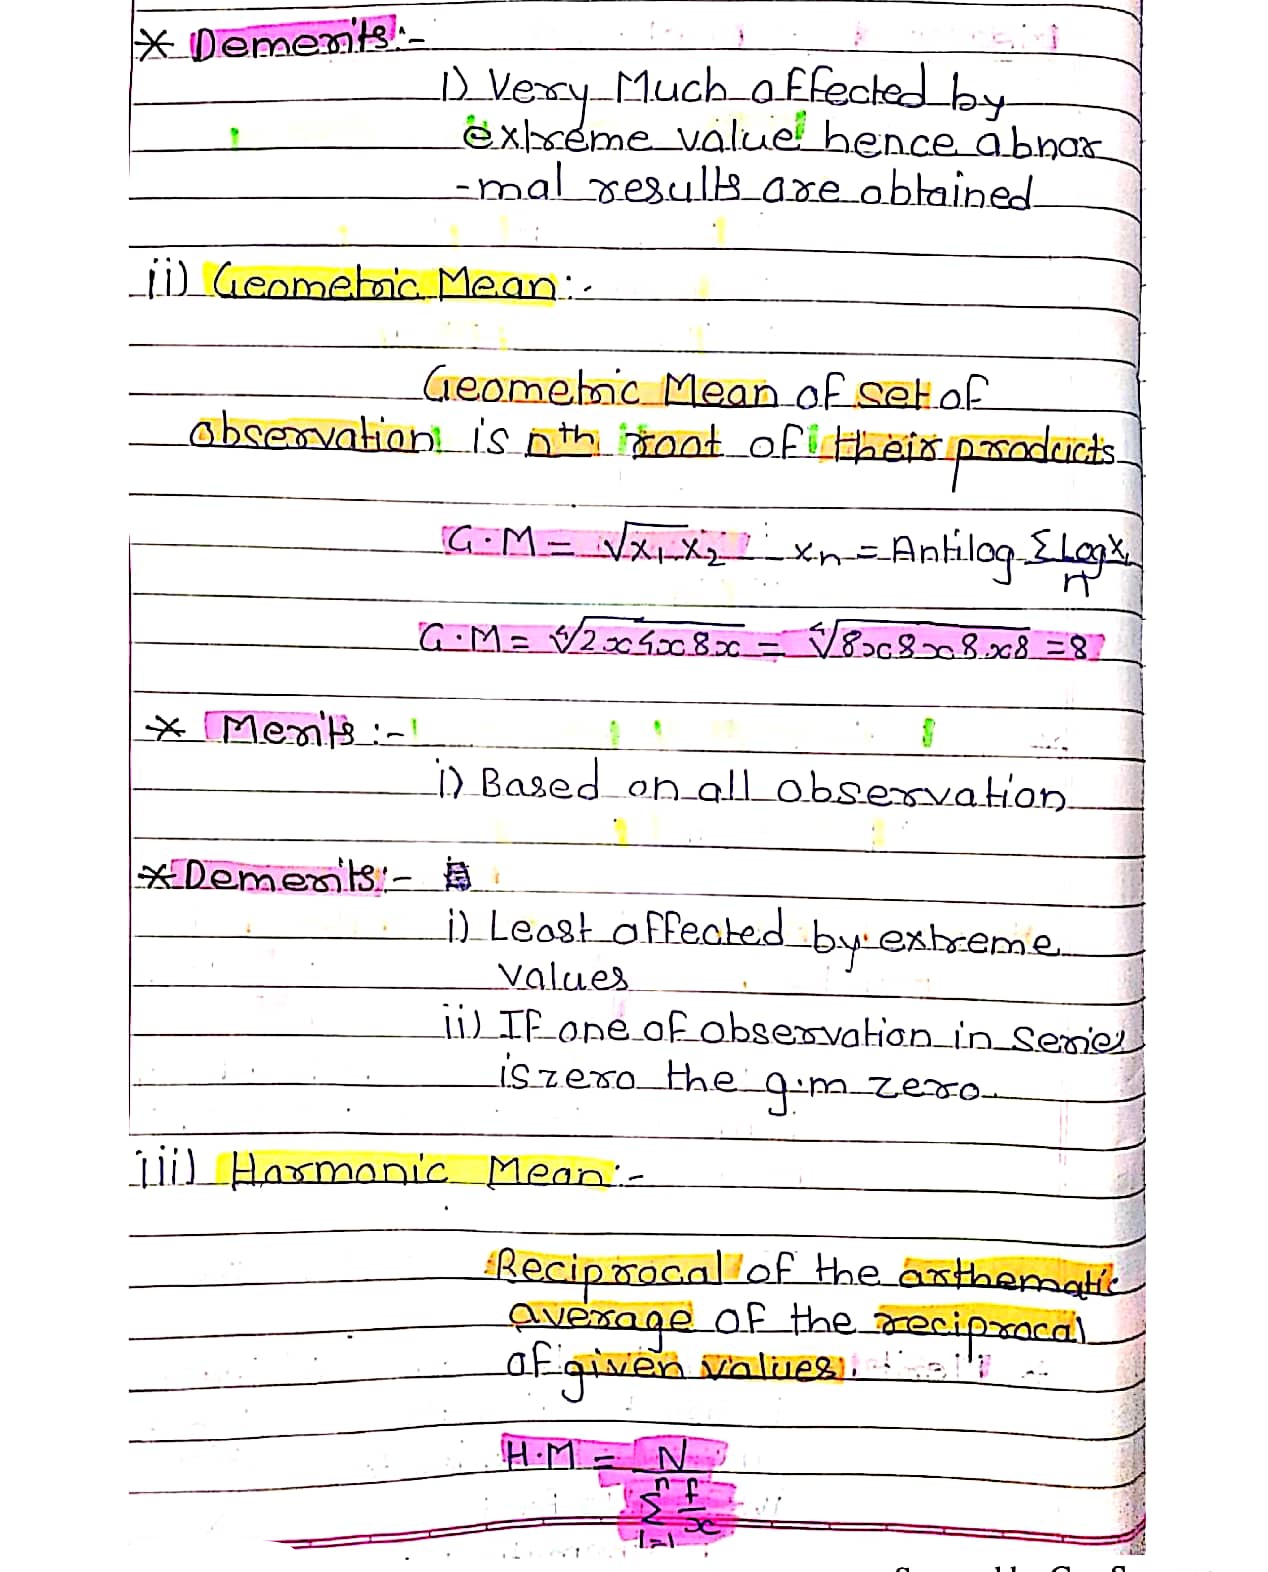 * Demerits:-
i) Very Much affected by
extreme value hence abnor
-mal results are obtained
ii) Geometric Mean:-
Geometric Mean of set of
observation is nth root of their products
G.M = √x₁ x₂ xn = Antilog Σ Log x₁
n
G.M = ∜2x4x8x = ∜8x8x8x8 = 8
* Merits:-
i) Based on all observation
* Demerits:-
i) Least affected by extreme
values
ii) If one of observation in series
is zero the g.m zero.
iii) Harmonic Mean:-
Reciprocal of the arthematic
average of the reciprocal
of given values
H.M = N
n f
Σ x
i=1